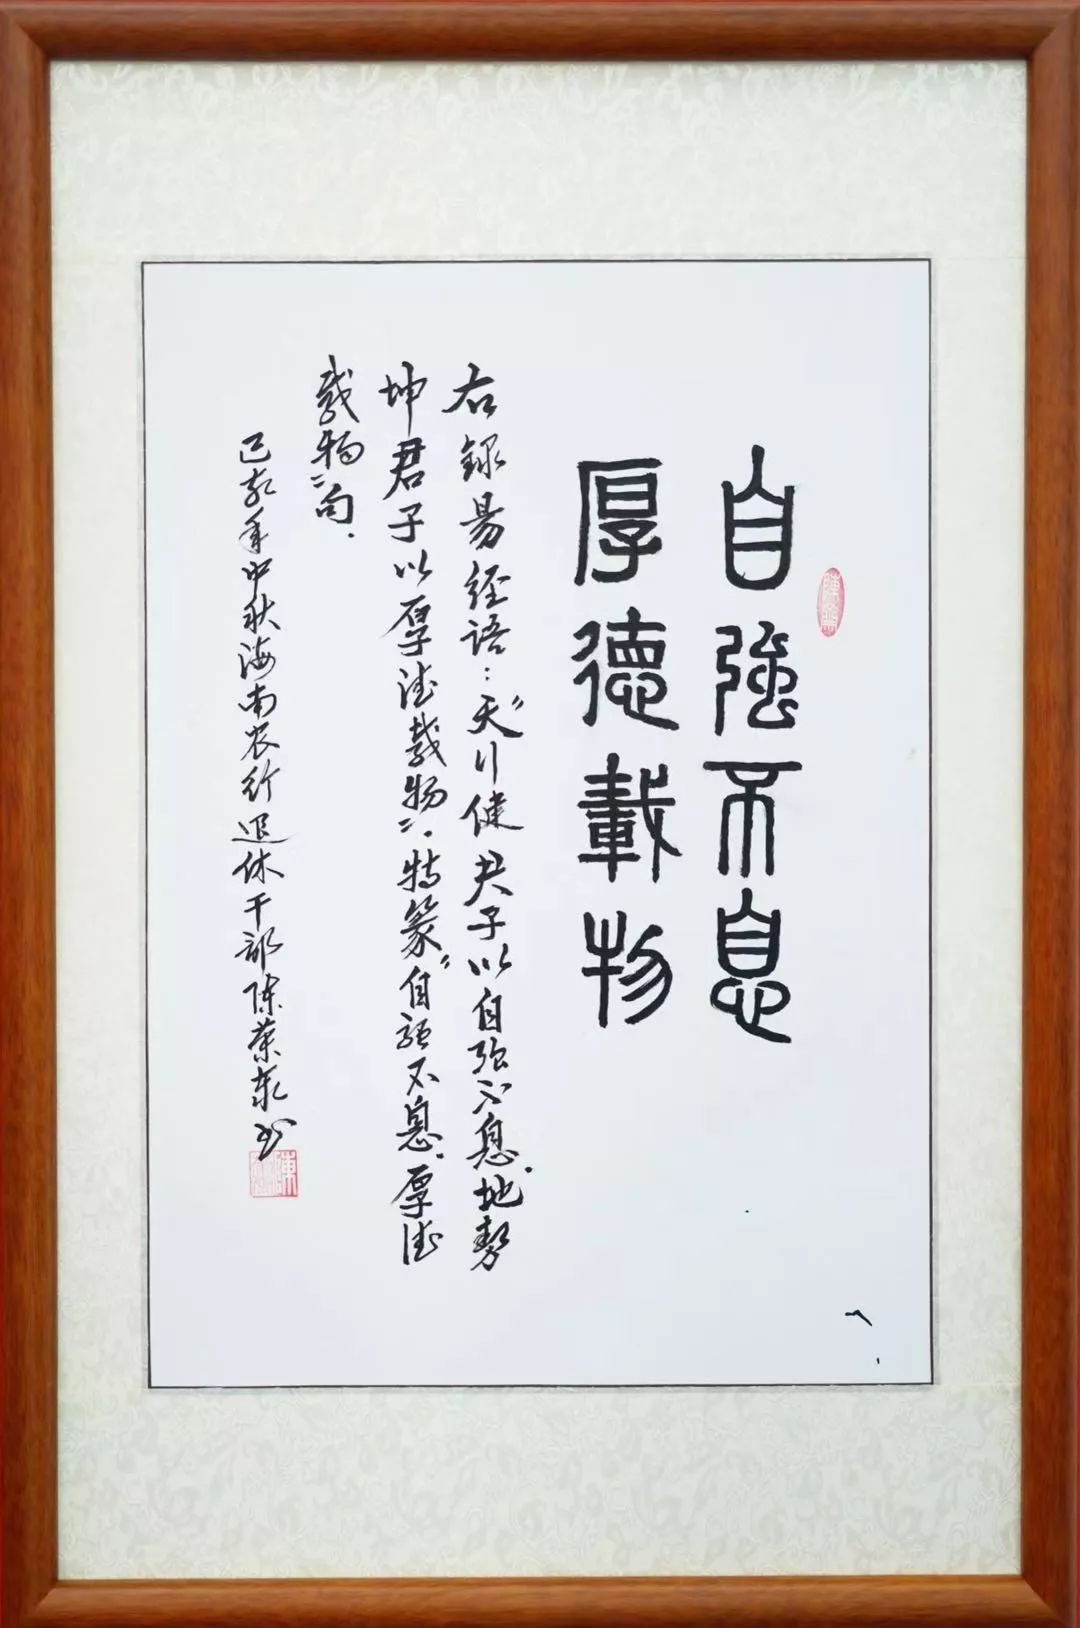 自強不息
厚德載物
右録易经语：“天行健君子以自强不息。地势
坤君子以厚德载物”。特篆“自强不息”厚德
载物”句。
己亥年中秋海南农行退休干部陈荣东书